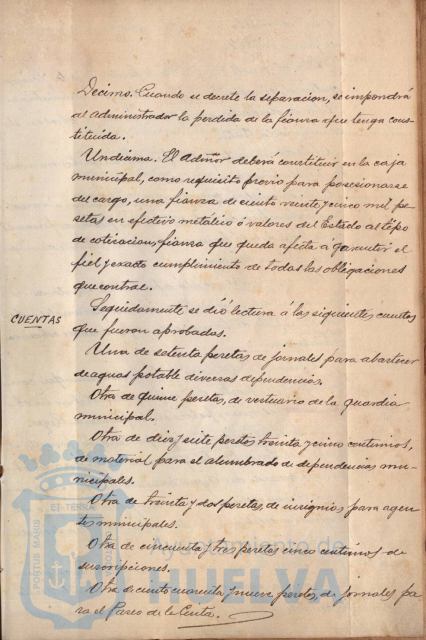 Decimo. Cuando se decrete la separacion, se impondrá
al administrador la perdida de la fianza que tenga cons-
tituida.
Undecima. El Admor deberá constituir en la caja
municipal, como requisito previo para posesionarse
del cargo, una fianza de ciento veinte y cinco mil pe-
setas en efectivo metálico ó valores del Estado al tipo
de cotizacion, fianza que queda afecta á garantir el
fiel y exacto cumplimiento de todas las obligaciones
que contrae.
CUENTAS
Seguidamente se dió lectura á las siguientes cuentas
que fueron aprobadas.
Una de setenta pesetas de jornales para abastecer
de aguas potable diversas dependencias.
Otra de quince pesetas, de vestuario de la guardia
municipal.
Otra de diez y siete pesetas treinta y cinco centimos,
de material para el alumbrado de dependencias mu-
nicipales.
Otra de treinta y dos pesetas, de insignias para agen-
tes municipales.
Otra de cincuenta y tres pesetas cinco centimos de
suscripciones.
Otra de ciento cuarenta y nueve pesetas de jornales pa-
ra el Paseo de la Cinta.
PORTUS MARIS ET TERRÆ
Ayuntamiento de
HUELVA